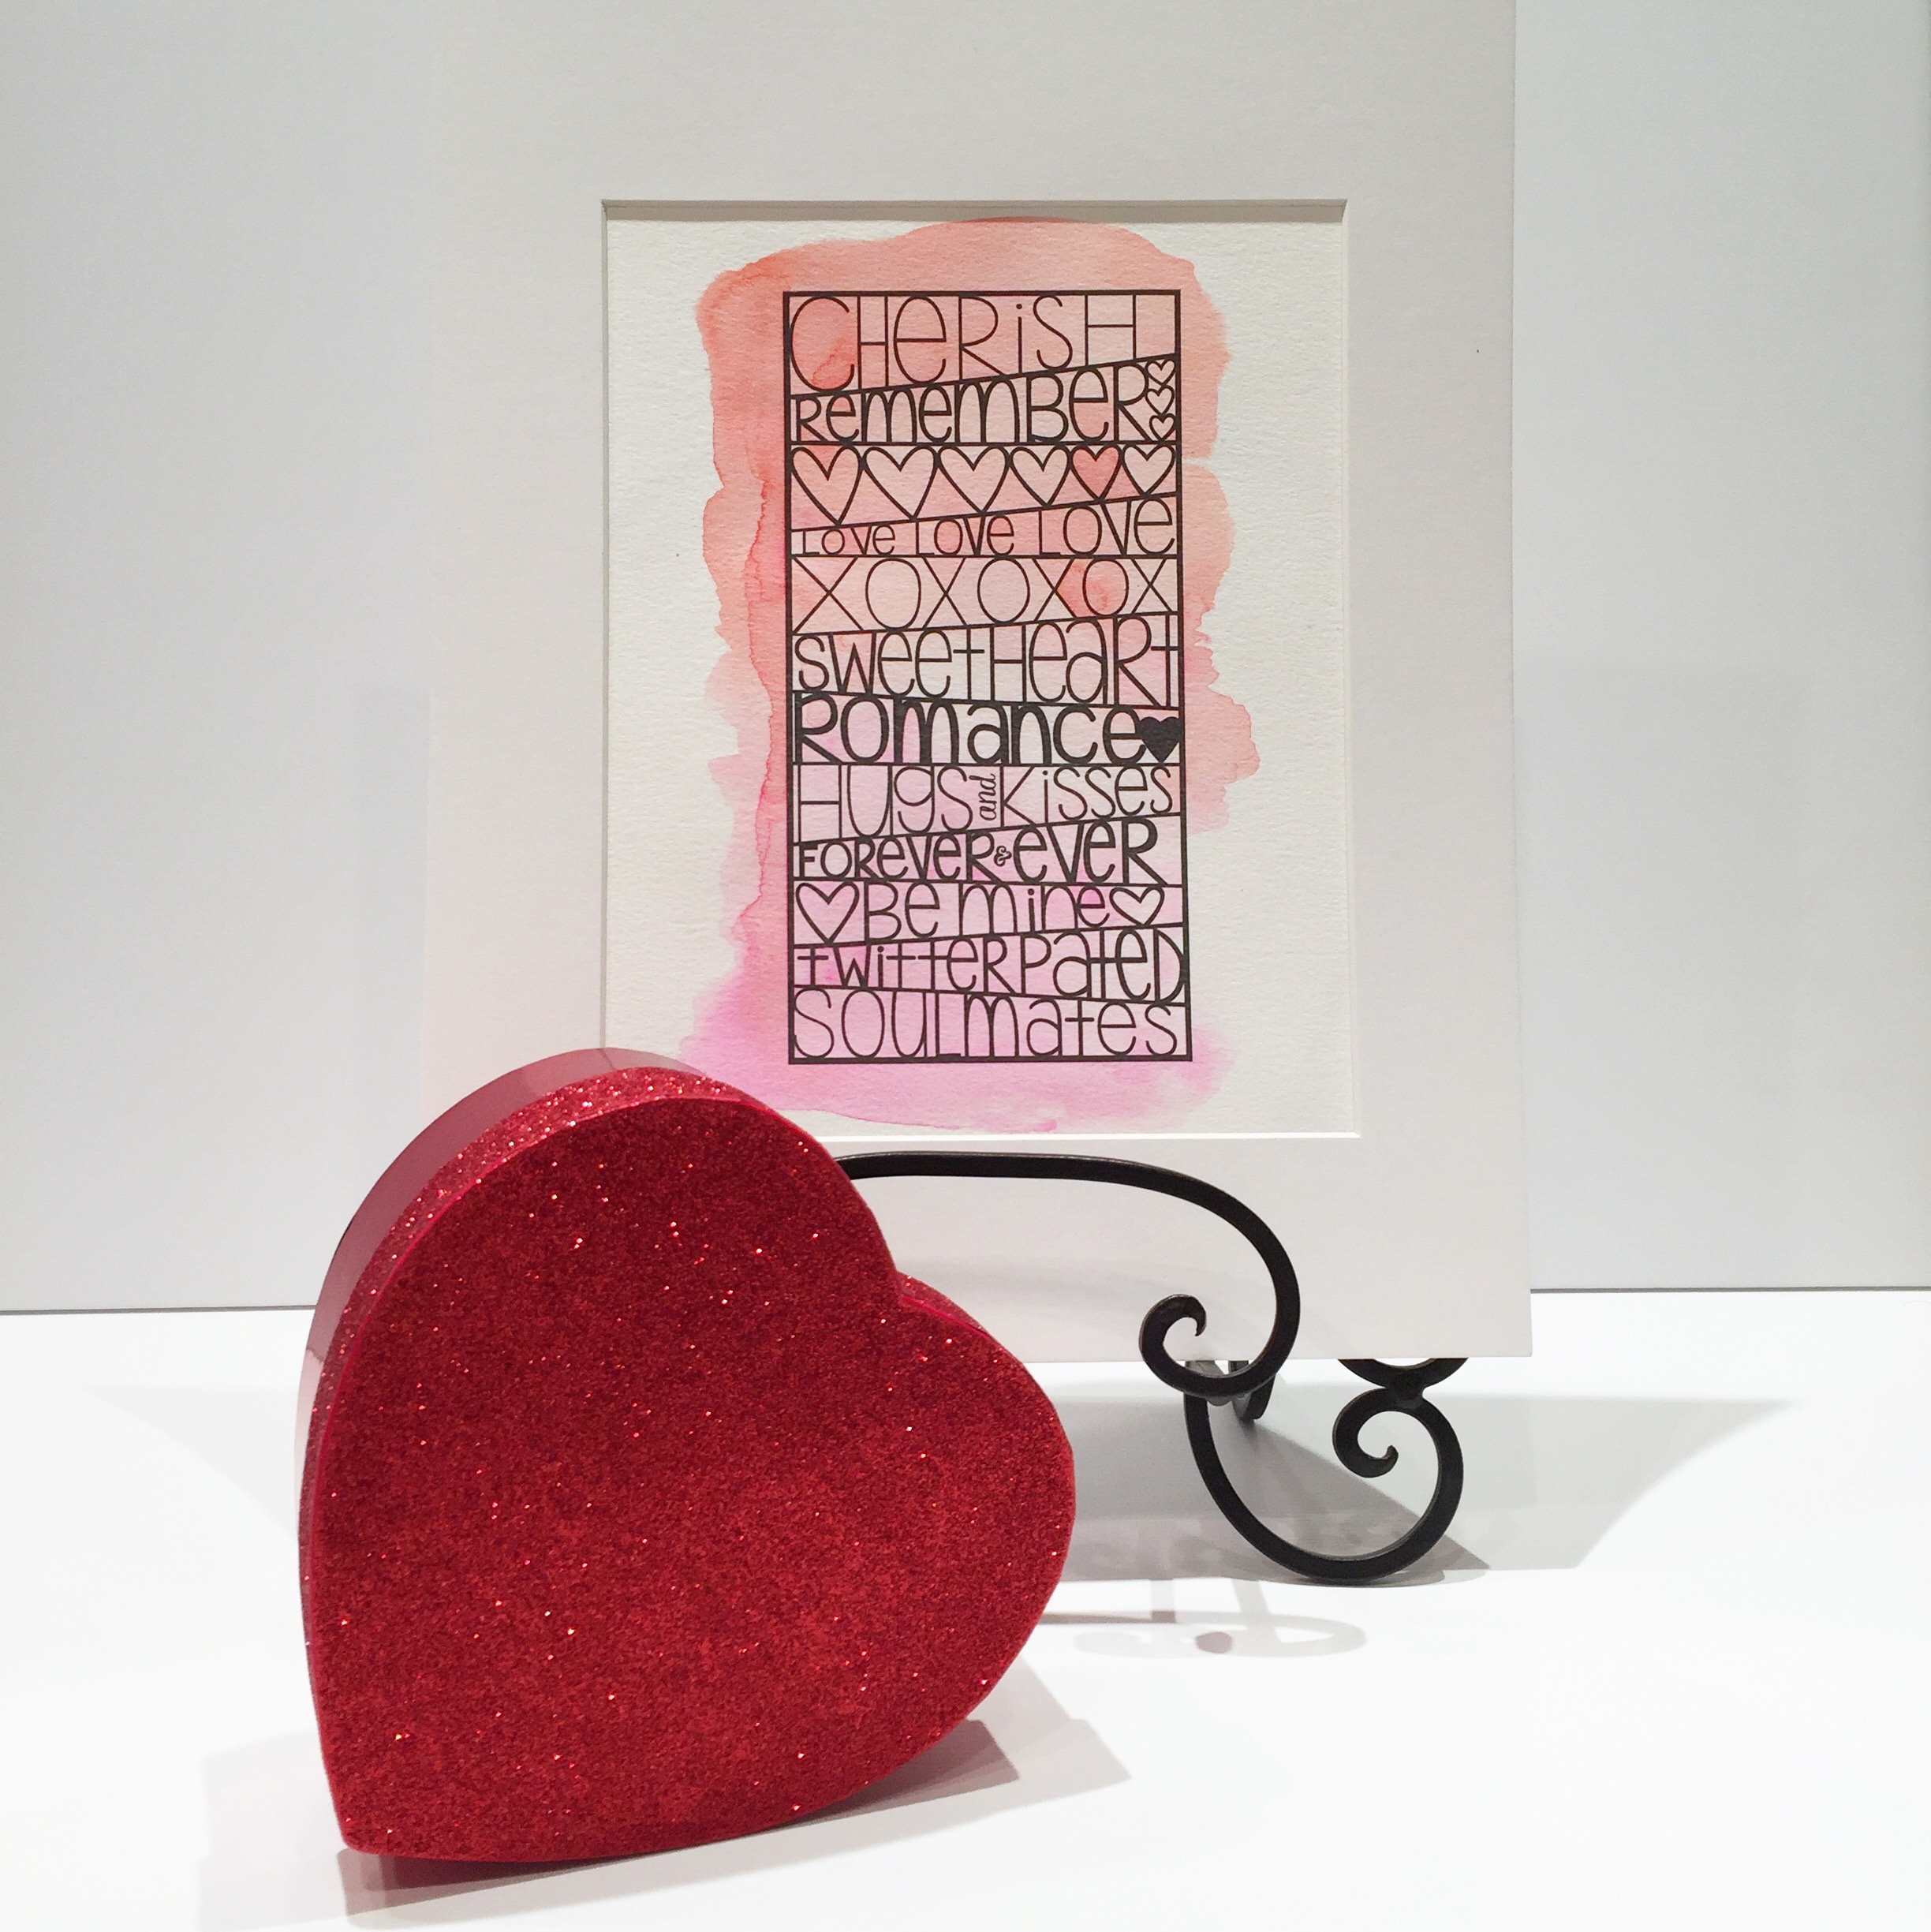 CHeRiSH
RememBeR
LOve LOve LOVe
XOXOXOX
SweetHeaRt
ROmance
HUgS and KiSSeS
FOReveR & eveR
Be mine
twitteRPateD
SOULmateS